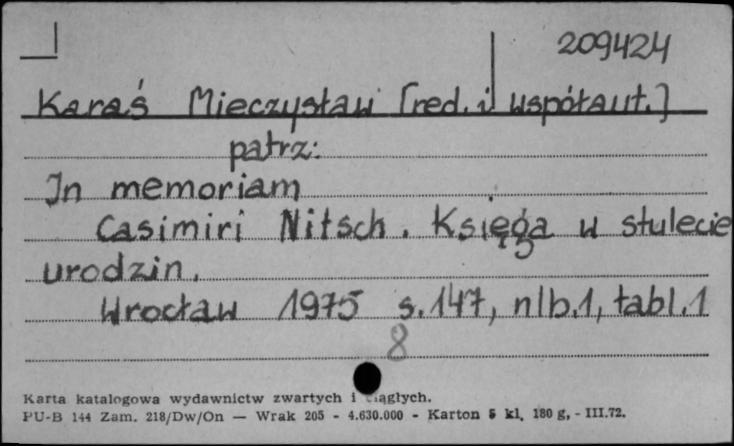 209424
Karaś Mieczysław [red. i współaut.]
patrz:
In memoriam
Casimiri Nitsch. Księga w stulecie
urodzin.
Wrocław 1975 s. 147, nlb. 1, tabl. 1
8
Karta katalogowa wydawnictw zwartych i ciągłych.
PU-B 144 Zam. 218/Dw/On — Wrak 205 - 4.630.000 - Karton 5 kl. 180 g, - III.72.